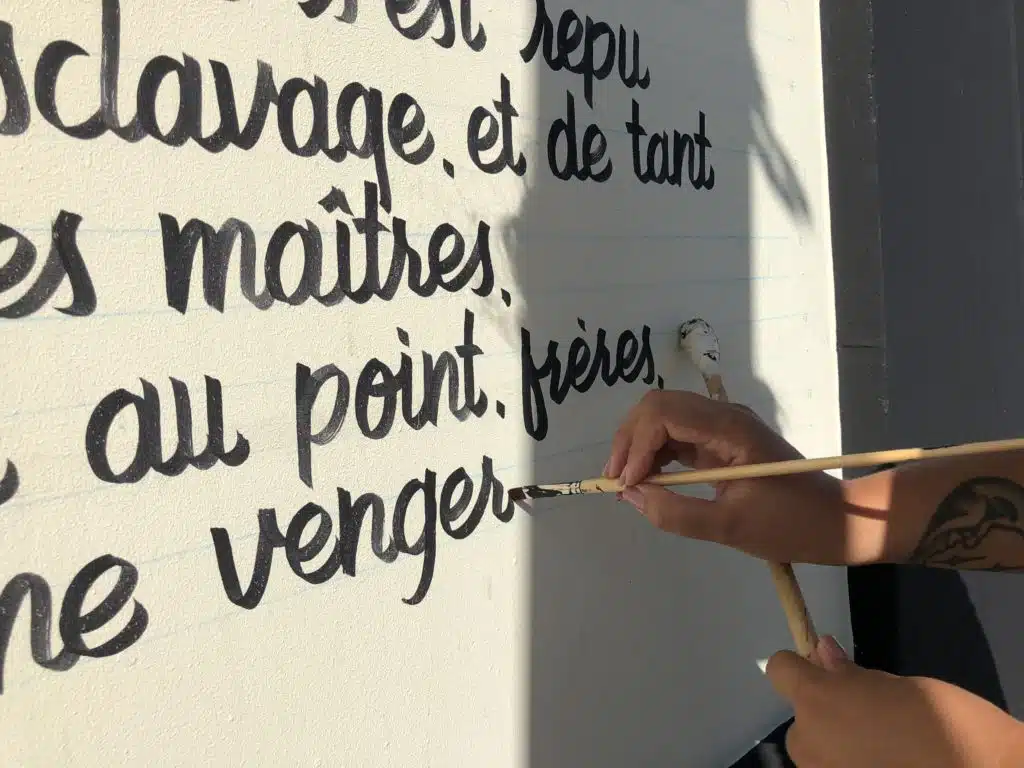 est repu
sclavage, et de tant
es maîtres,
au point, frères,
me venger